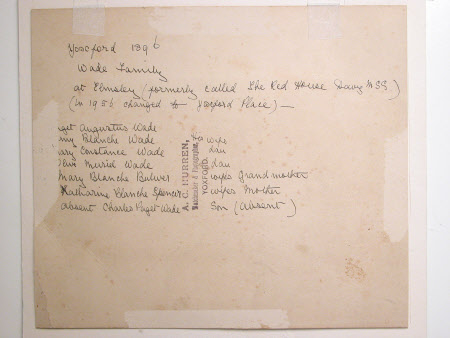 Yoxford 1896
Wade Family
at Elmsley (formerly called The Red House
(in 1956 changed to Yoxford Place) —
get Augustus Wade
my Blanche Wade wife
ary Constance Wade dau
Muriel Wade dau
Mary Blanche Bulwer wifes Grandmother
Katharine Blanche Spencer wifes Mother
absent Charles Paget Wade Son (Absent)
A. C. HURREN,
YOXFORD.